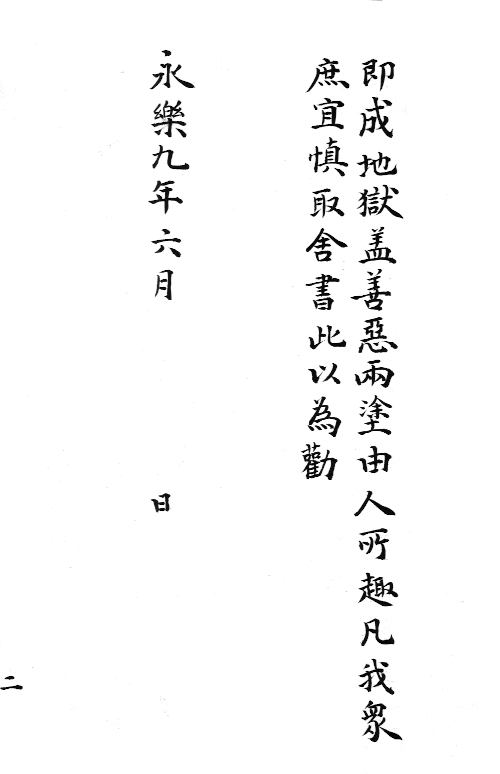 即成地獄盖善惡兩塗由人所趣凡我眾
庶宜慎取舍書此以為勸
永樂九年六月 日
二